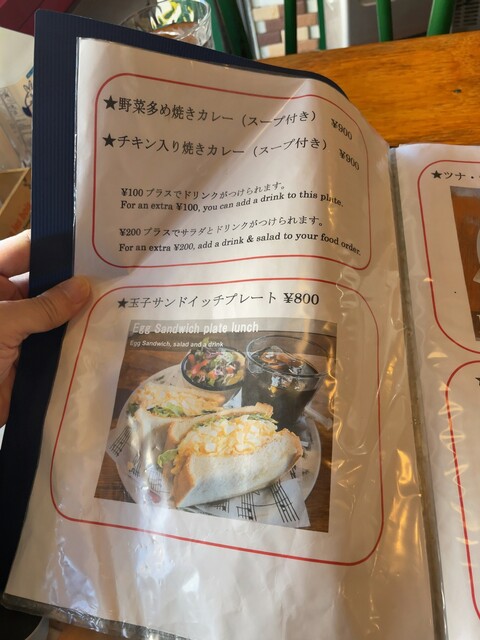 ★野菜多め焼きカレー（スープ付き） ¥900
★チキン入り焼きカレー（スープ付き） ¥900
¥100プラスでドリンクがつけられます。
For an extra ¥100, you can add a drink to this plate.
¥200プラスでサラダとドリンクがつけられます。
For an extra ¥200, add a drink & salad to your food order.
★玉子サンドイッチプレート ¥800
Egg Sandwich plate lunch
Egg Sandwich, salad and a drink
★ツナ・